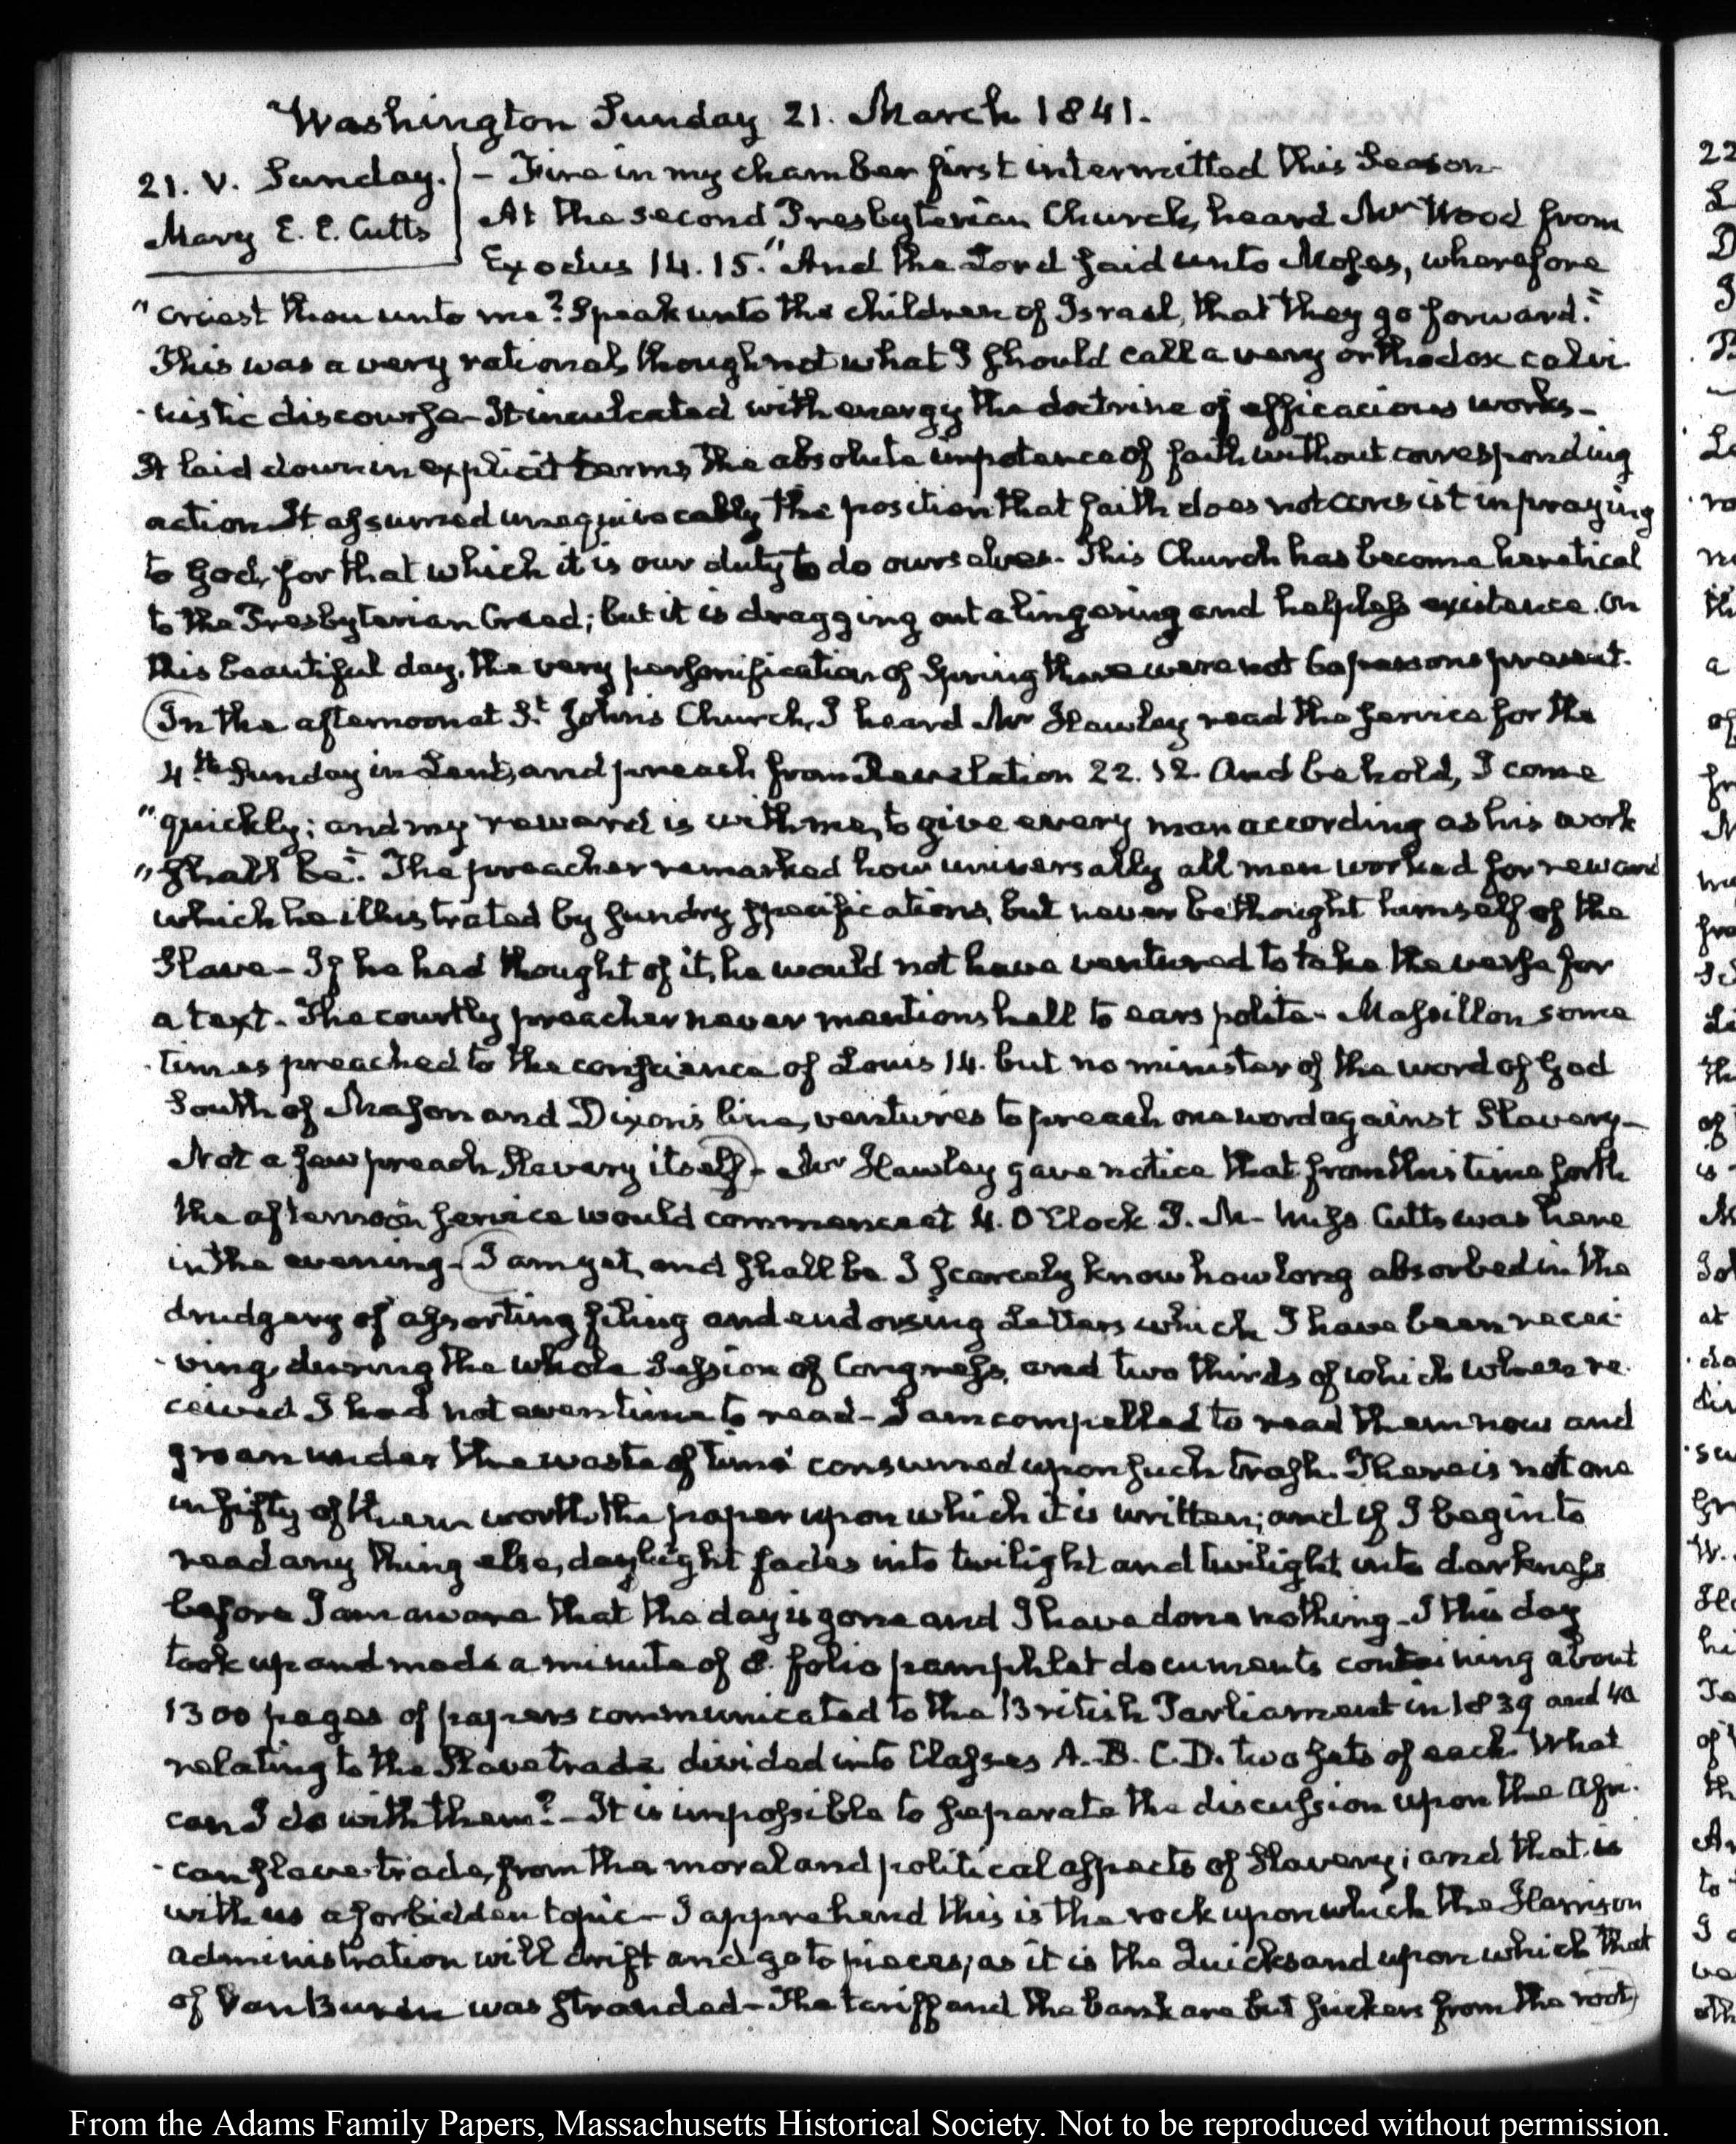 Washington Sunday 21. March 1841.
21. V. Sunday.
Mary E. E. Cutts
– Fire in my chamber first intermitted this Season
At the second Presbyterian Church, heard Mr Wood from
Exodus 14.15. "And the Lord said unto Moses, wherefore
"criest thou unto me? Speak unto the children of Israel, that they go forward."
This was a very rational, though not what I should call a very orthodox calvi
nistic discourse – It inculcated with energy the doctrine of efficacious works –
It laid down in explicit terms, the absolute impotence of faith without corresponding
action. It assumed unequivocally the position that faith does not consist in praying
to God, for that which it is our duty to do ourselves – This Church has become heretical
to the Presbyterian Creed; but it is dragging out a lingering and helpless existence. On
this beautiful day, the very personification of Spring there were not 60 persons present.
In the afternoon at St. John's Church, I heard Mr Hawley read the service for the
4th Sunday in Lent, and preach from Revelation 22.12. And behold, I come
"quickly; and my reward is with me, to give every man according as his work
"shall be." The preacher remarked how universally all men worked for reward
which he illustrated by sundry specifications, but never bethought himself of the
Slave – If he had thought of it, he would not have ventured to take the verse for
a text – The courtly preacher never mentions hell to ears polite – Massillon some
times preached to the conscience of Louis 14. but no minister of the word of God
South of Mason and Dixon's line, ventures to preach one word against Slavery –
Not a few preach Slavery itself – Mr Hawley gave notice that from this time forth
the afternoon service would commence at 4. O'Clock P. M – Miss Cutts was here
in the evening – I am yet, and shall be I scarcely know how long absorbed in the
drudgery of assorting filing and endorsing Letters which I have been recei
ving during the whole Session of Congress, and two thirds of which when re
ceived I had not even time to read – I am compelled to read them now and
groan under the waste of time consumed upon such trash. There is not one
in fifty of them worth the paper upon which it is written; and if I begin to
read any thing else, daylight fades into twilight and twilight into darkness
before I am aware that the day is gone and I have done nothing – I this day
took up and made a minute of 8. folio pamphlet documents containing about
1300 pages of papers communicated to the British Parliament in 1839 and 40
relating to the Slave trade divided into Classes A. B. C. D. two sets of each. What
can I do with them? – It is impossible to separate the discussion upon the Afri
can slave-trade, from the moral and political aspects of Slavery; and that is
with us a forbidden topic – I apprehend this is the rock upon which the Harrison
administration will drift and go to pieces; as it is the Quicksand upon which that
of Van Buren was stranded – The tariff and the bank are but suckers from the root,
From the Adams Family Papers, Massachusetts Historical Society. Not to be reproduced without permission.